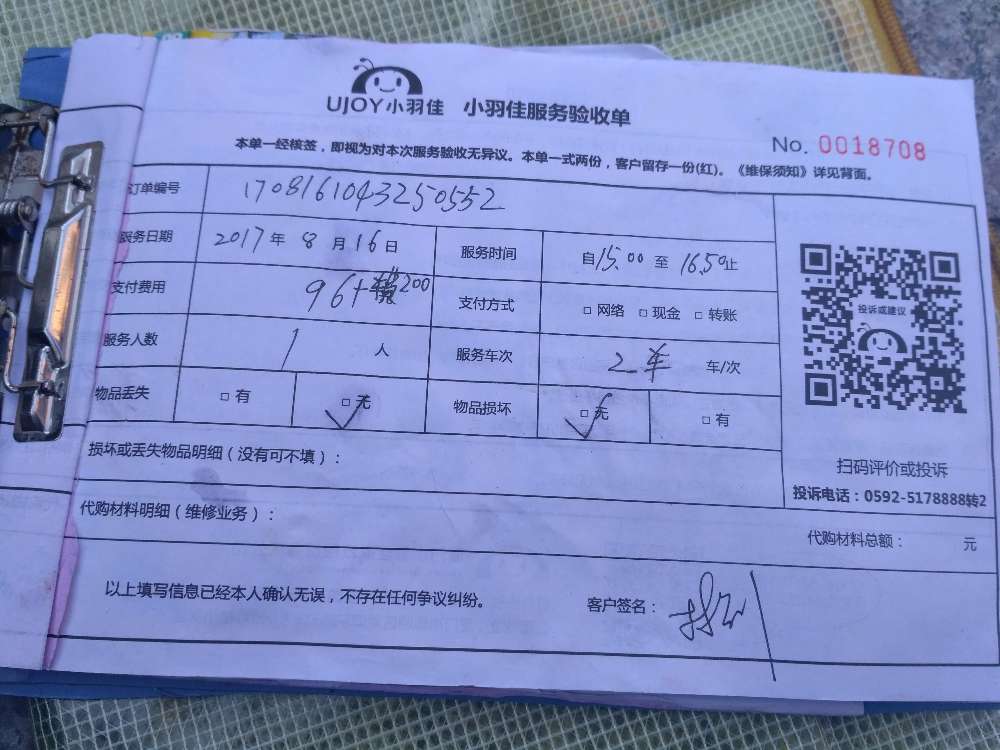 UJOY小羽佳 小羽佳服务验收单
No. 0018708
本单一经核签，即视为对本次服务验收无异议。本单一式两份，客户留存一份(红)。《维保须知》详见背面。
订单编号 1708161043250552
服务日期 2017年8月16日 服务时间 自15.00至16.50止
支付费用 96+ 200 支付方式 □网络 □现金 □转账
服务人数 1人 服务车次 2车 车/次
物品丢失 □有 □无 物品损坏 □无 □有
损坏或丢失物品明细（没有可不填）：
投诉或建议
扫码评价或投诉
投诉电话：0592-5178888转2
代购材料明细（维修业务）：
代购材料总额： 元
以上填写信息已经本人确认无误，不存在任何争议纠纷。 客户签名：